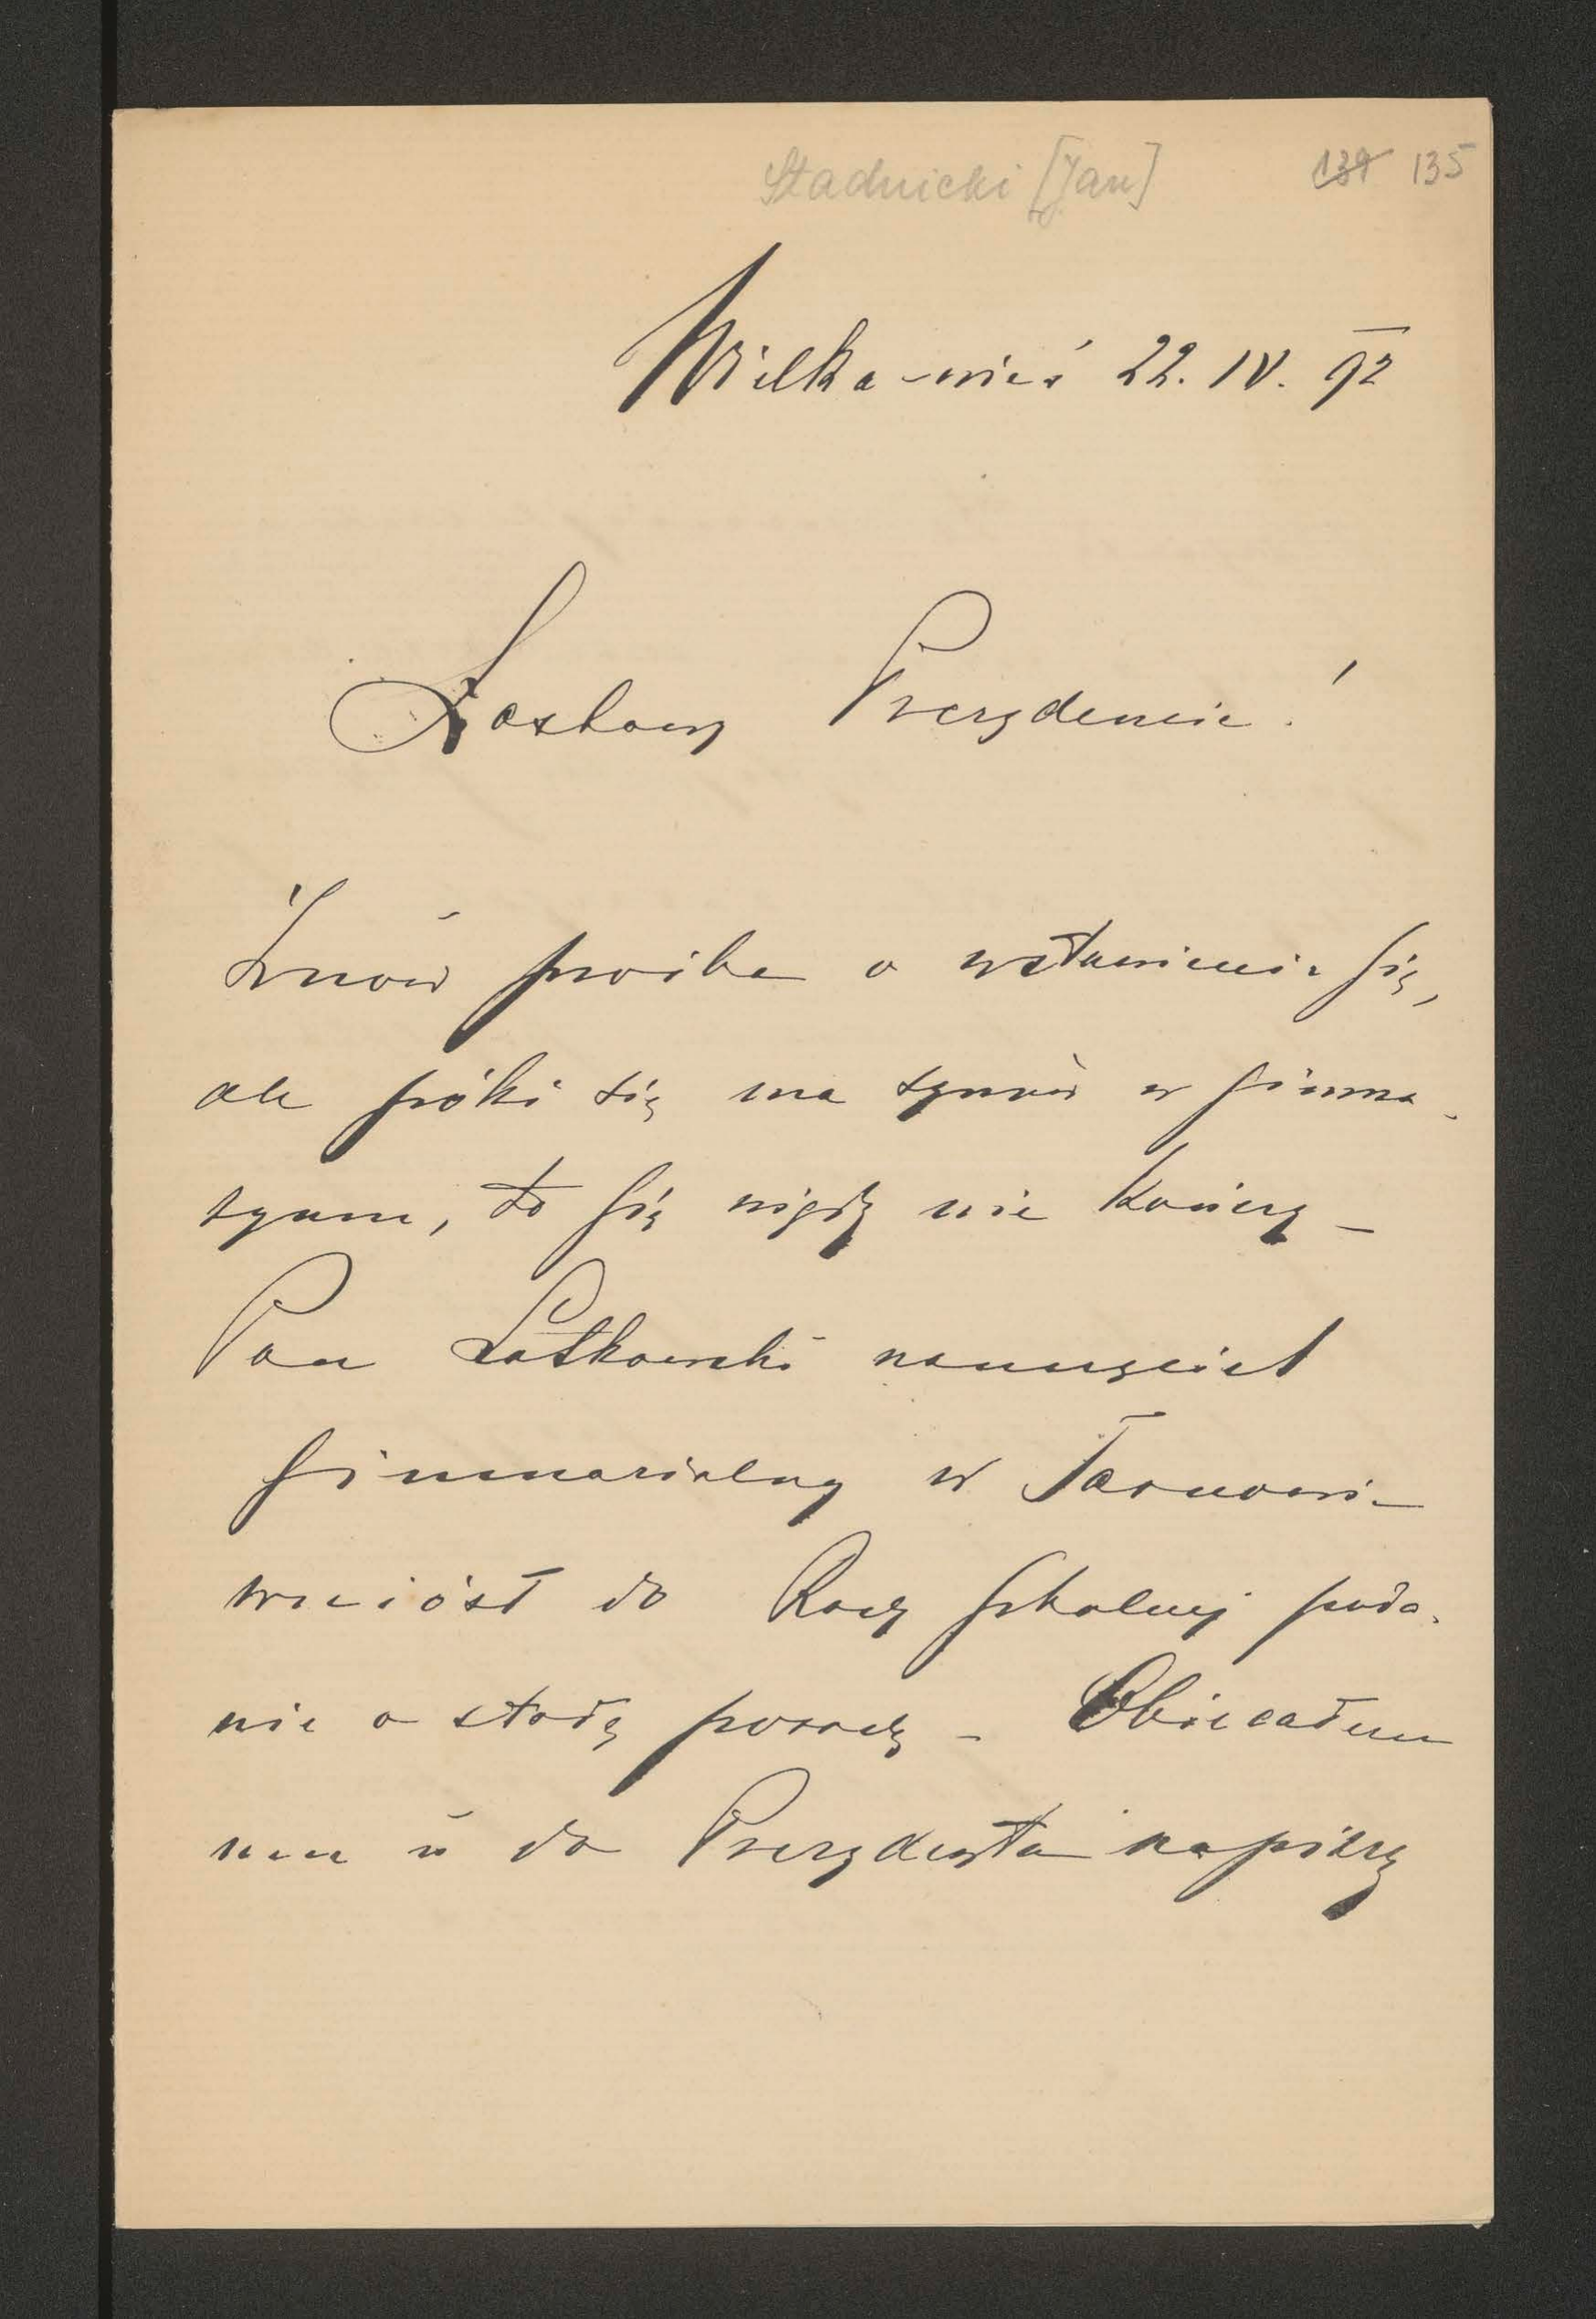 Stadnicki [Jan] 134 135
Wielka-wieś 22. IV. 92
Łaskawy Prezydencie!
Znów prośba o wstawienie się,
ale póki się ma synów w gimna-
zyum, to się nigdy nie kończy –
Pan Łatkowski nauczyciel
gimnazialny w Tarnowie
wniósł do Rady szkolnej poda-
nie o stałą posadę – Obiecałem
mu iż do Prezydenta napiszę